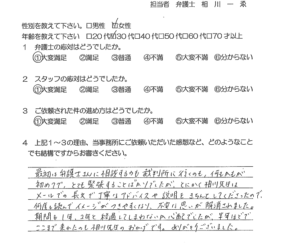 担当者 弁護士 相川一ゑ
性別を教えて下さい。□男性 ☑女性
年齢を教えて下さい□20代☑30代□40代□50代□60代□70才以上
1 弁護士の応対はどうでしたか。
①大変満足 ②満足 ③普通 ④不満 ⑤大変不満 ⑥分からない
2 スタッフの応対はどうでしたか。
①大変満足 ②満足 ③普通 ④不満 ⑤大変不満 ⑥分からない
3 ご依頼された件の進め方はどうでしたか。
①大変満足 ②満足 ③普通 ④不満 ⑤大変不満 ⑥分からない
4 上記1～3の理由、当事務所にご依頼いただいた感想など、どのようなこと
でも結構ですからお書きください。
最初は弁護士さんに相談するのも裁判所に行くのも、何もかもが
初めてで、とても緊張することばかりでしたが、とにかく相川先生は
メールでの長文で丁寧なアドバイスや説明をきちんとしてくださったので、
何度も読んでイメージができやすくなり、不安な思いが解消されました。
期間も1年、2年と
ここまで来れたのも相川先生のおかげです。ありがとうございました。